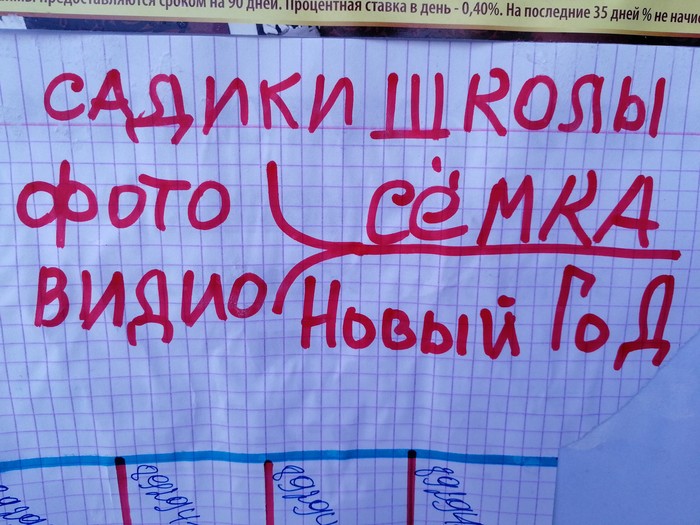 предоставляются сроком на 90 дней. Процентная ставка в день - 0,40%. На последние 35 дней % не
САДИКИ ШКОЛЫ
ФОТО СЁМКА
ВИДИО НОВЫЙ ГОД